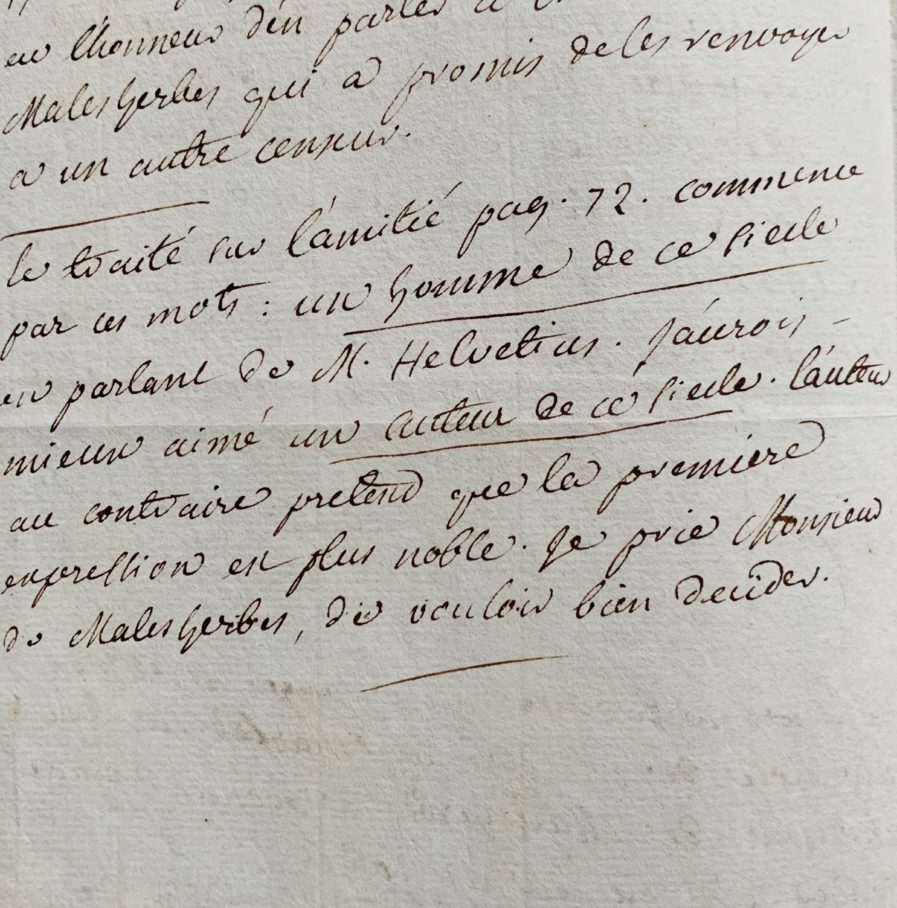 eu l'honneur d'en parler a
Malesherbes qui a promis de les renvoyer
a un autre censeur.
le traité sur l'amitié pag. 72. commence
par ces mots : un homme de ce siecle
en parlant de M. Helvetius. j'aurois
mieux aimé un auteur de ce siecle. l'auteur
au contraire pretend que la premiere
expression est plus noble. je prie Monsieur
de Malesherbes, de vouloir bien decider.